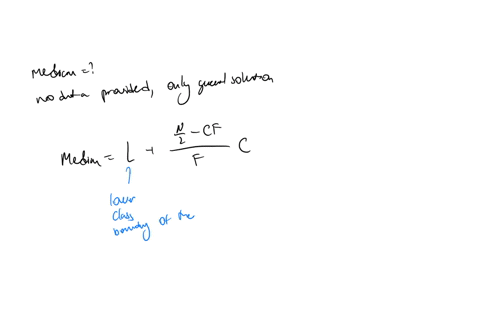 Median = ?
no data provided, only general solution
Median = L + \frac{\frac{N}{2} - CF}{F} C
lower
class
boundary of the